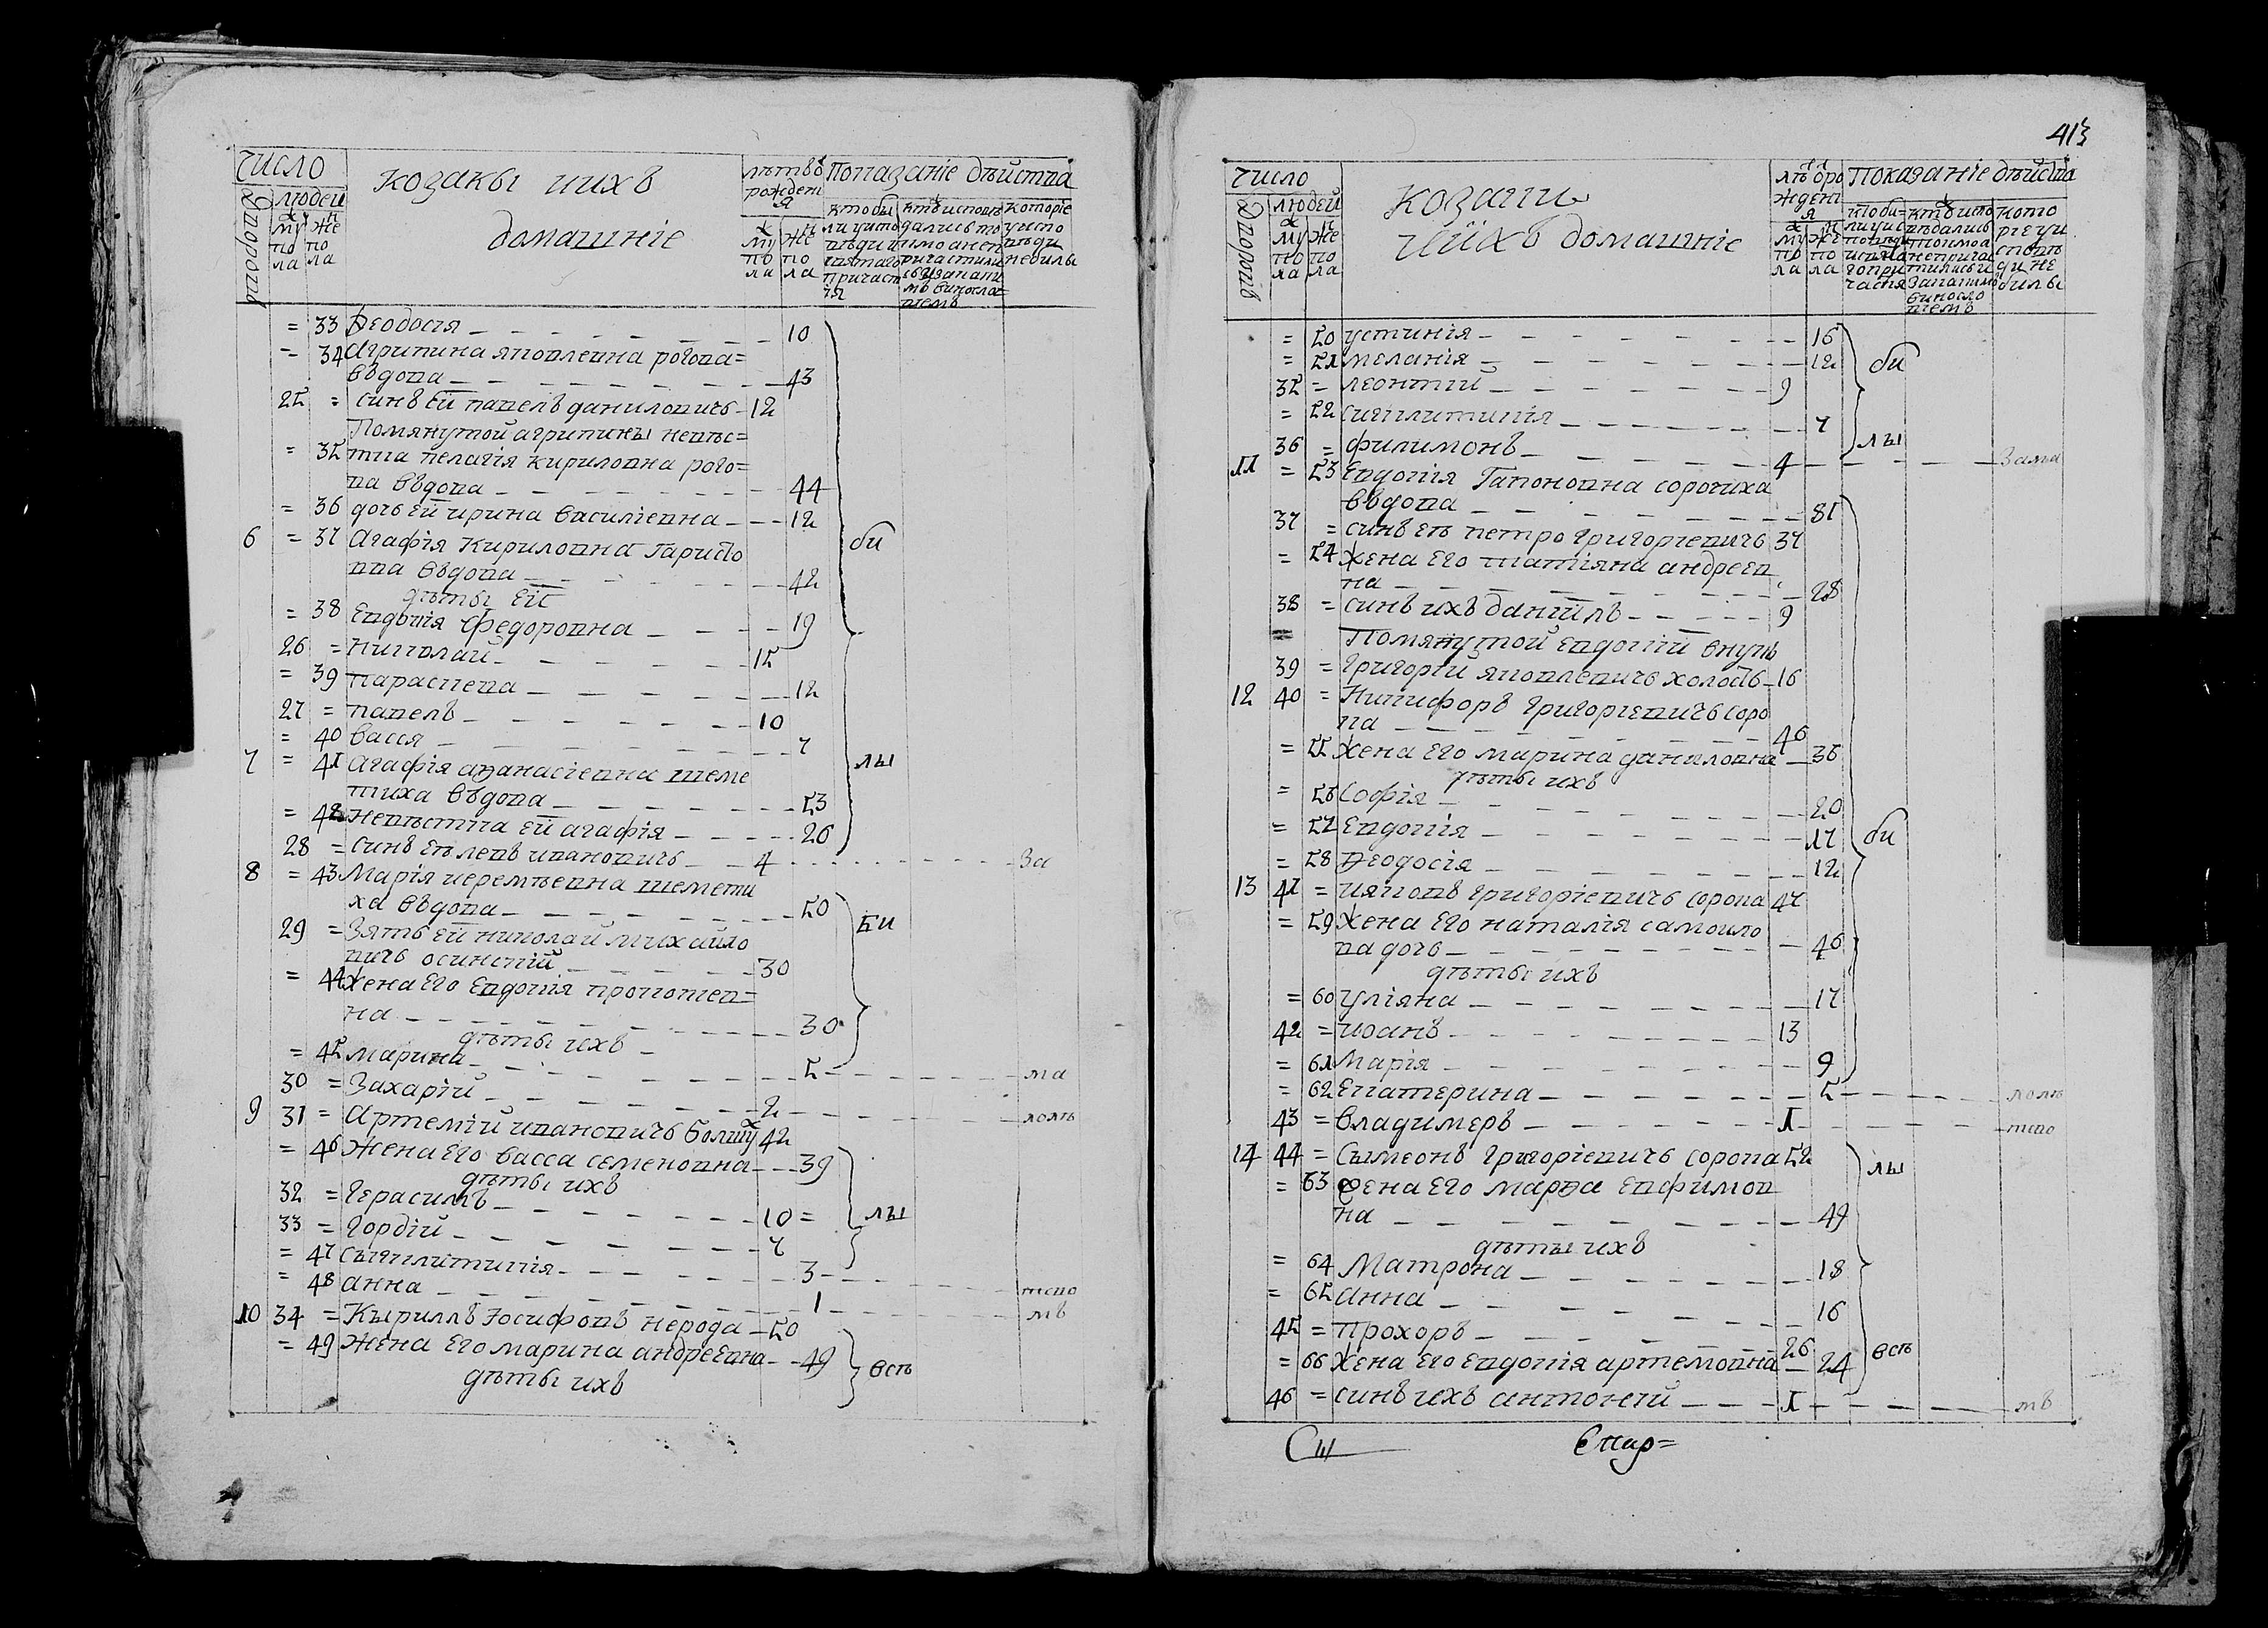 число
дворовъ
людей
муж по ла
жен по ла
козаки иихъ
домашніе
лѣтъ ѿ рожденія
муж по ла
жен по ла
показаніе дѣйства
= 33 Ѳеодосія 10
= 34 Агрипина яковлевна рогова=
въдова 43
25 = синъ ей павелъ даниловичъ 12
Помянутой агрипины невѣс=
= 35 тка пелагія кириловна рого=
ва въдова 44
= 36 дочь ей ирина василіевна 12
6 = 37 Агафія кириловна
въдова 42
дѣты еи
= 38 Евдокія федоровна 19
26 = николай 15
= 39 параскева 12
27 = павелъ 10
= 40 васся 7
7 = 41 Агафія аѳанасіевна шеме
тиха въдова 53
= 42 невѣстка ей агафія 26
28 = синъ еѣ левъ ивановичъ 4 За
8 = 43 Марія иеремѣевна шемети
ха въдова 50
29 = Зять ей николай михайло
вичъ осинскій 30
= 44 жена его Евдокія прокопев=
на 30
дѣты ихъ
= 45 марина 5 ма
30 = Захарій 2 лолѣ
9 31 = Артемій ивановичъ 42
= 46 Жена его васса семеновна 39
дѣты ихъ
32 = Герасимъ 10 =
33 = Гордій 7
= 47 сынклитикія 3 тство
= 48 анна 1 мъ
10 34 = Кыриллъ Іосифовъ нерода 50
= 49 Жена его марина андреевна 49
дѣты ихъ
би
лы
Би
лы
всѣ
413
число
дворовъ
людей
муж по ла
жен по ла
козаки
иихъ домашніе
лѣтъ ѿ рожденія
муж по ла
жен по ла
показаніе дѣйства
= 50 устинія 16
= 51 меланія 12
35 = леонтій 9
= 52 сигклитикія 7
36 = филимонъ 4 Зама
11 = 53 Евдокія Гапоновна сорочиха
въдова 81
37 = синъ еѣ петро григоріевичъ 37
= 54 жена его татіяна андреев
на 28
38 = синъ ихъ даніилъ 9
= Помянутой евдокій внукъ
39 = Григорій яковлевичъ холостъ 16
12 40 = Никифоръ григоріевичъ соро
ка 46
= 55 жена его марина даниловна 36
дѣты ихъ
= 56 Софія 20
= 57 Евдокія 17
= 58 Ѳеодосія 12
13 41 = Ияковъ григоріевичъ сорока 47
= 59 жена его наталія самоило
ва дочь 46
дѣты ихъ
= 60 уліяна 17
42 = иоанъ 13
= 61 Марія 9
= 62 Екатерина 5 лолѣ
43 = владимеръ 1 тсво
14 44 = Сымеонъ григоріевичъ сорока 52
= 63 жена его марѳа евфимов
на 49
дѣты ихъ
= 64 Матрона 18
= 65 анна 16
45 = Прохоръ 26
= 66 жена его евдокія артемовна 24
46 = синъ ихъ антоній 1 мъ
би
лы
би
лы
всѣ